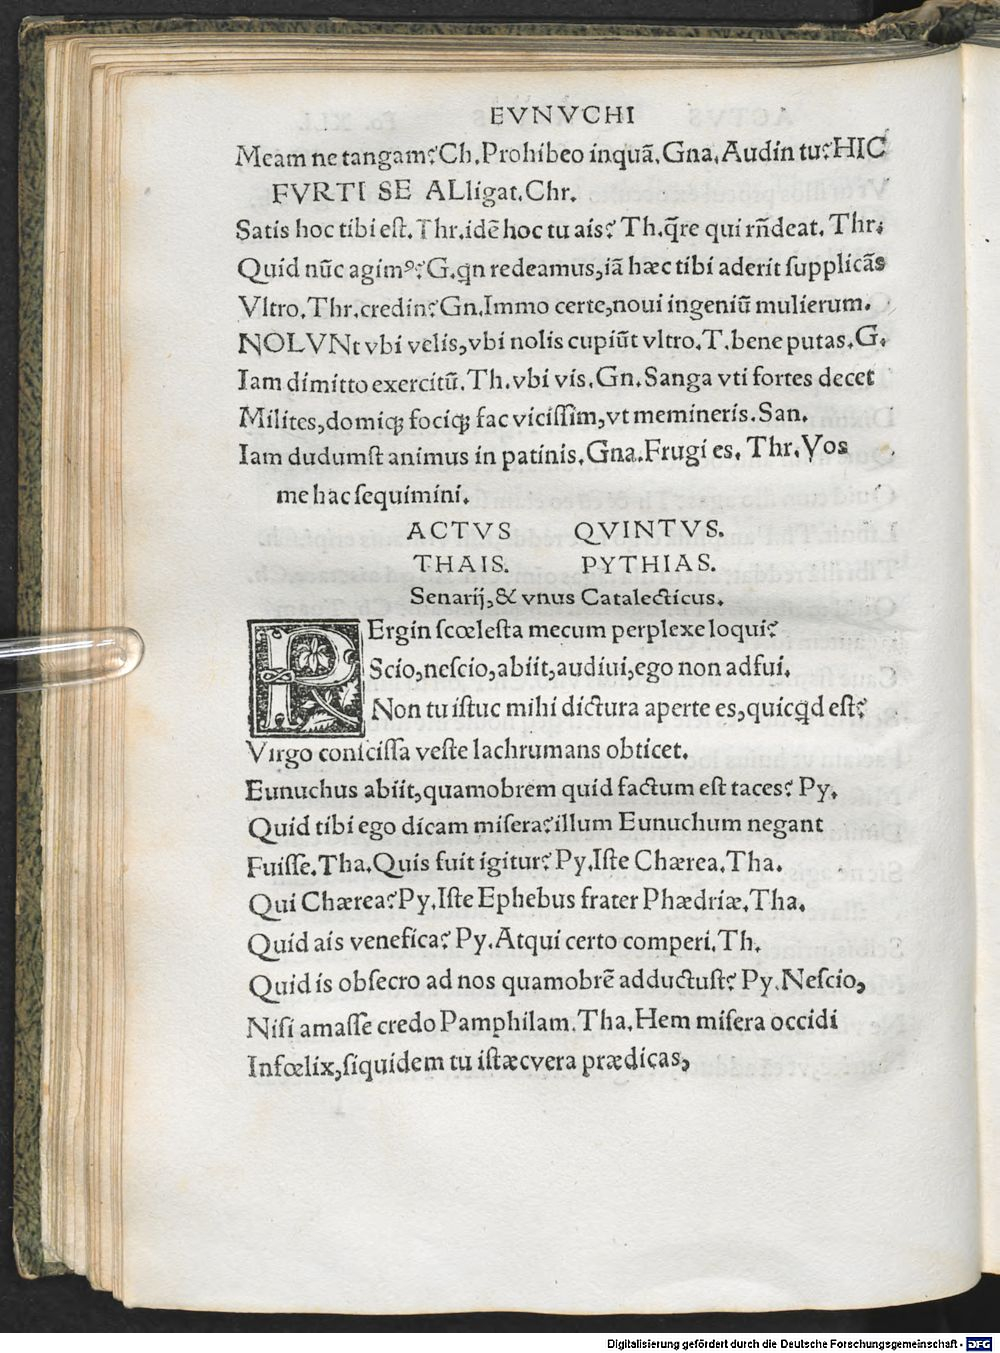 EVNVCHI
Meam ne tangam? Ch. Prohibeo inquã. Gna. Audin tu? HIC
FVRTI SE ALligat. Chr.
Satis hoc tibi est. Thr. idẽ hoc tu ais? Th. q̃re qui rñdeat. Thr.
Quid nũc agimꝰ? G. qn redeamus, iã hæc tibi aderit supplicãs
Vltro. Thr. credin? Gn. Immo certe, noui ingeniũ mulierum.
NOLVNt vbi velis, vbi nolis cupiũt vltro. T. bene putas. G.
Iam dimitto exercitũ. Th. vbi vis. Gn. Sanga vti fortes decet
Milites, domiqꝫ fociqꝫ fac vicissim, vt memineris. San.
Iam dudumst animus in patinis. Gna. Frugi es. Thr. Vos
me hac sequimini.
ACTVS QVINTVS.
THAIS. PYTHIAS.
Senarij, & vnus Catalecticus.
PErgin scœlesta mecum perplexe loqui?
Scio, nescio, abiit, audiui, ego non adfui.
Non tu istuc mihi dictura aperte es, quicqd est?
Virgo conicissa veste lachrumans obticet.
Eunuchus abiit, quamobrem quid factum est taces? Py.
Quid tibi ego dicam misera? illum Eunuchum negant
Fuisse. Tha. Quis fuit igitur? Py. Iste Chærea. Tha.
Qui Chærea? Py. Iste Ephebus frater Phædriæ. Tha.
Quid ais venefica? Py. Atqui certo comperi. Th.
Quid is obsecro ad nos quamobrẽ adductust? Py. Nescio,
Nisi amasse credo Pamphilam. Tha. Hem misera occidi
Infœlix, siquidem tu istæc vera prædicas,
Digitalisierung gefördert durch die Deutsche Forschungsgemeinschaft - DFG